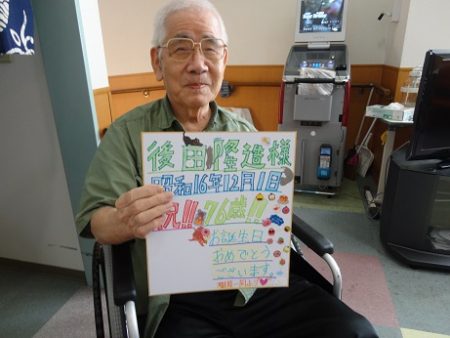 後田隆造様
昭和16年12月1日
祝!!76歳!!
お誕生日
おめでとう
ございます。
職員一同より